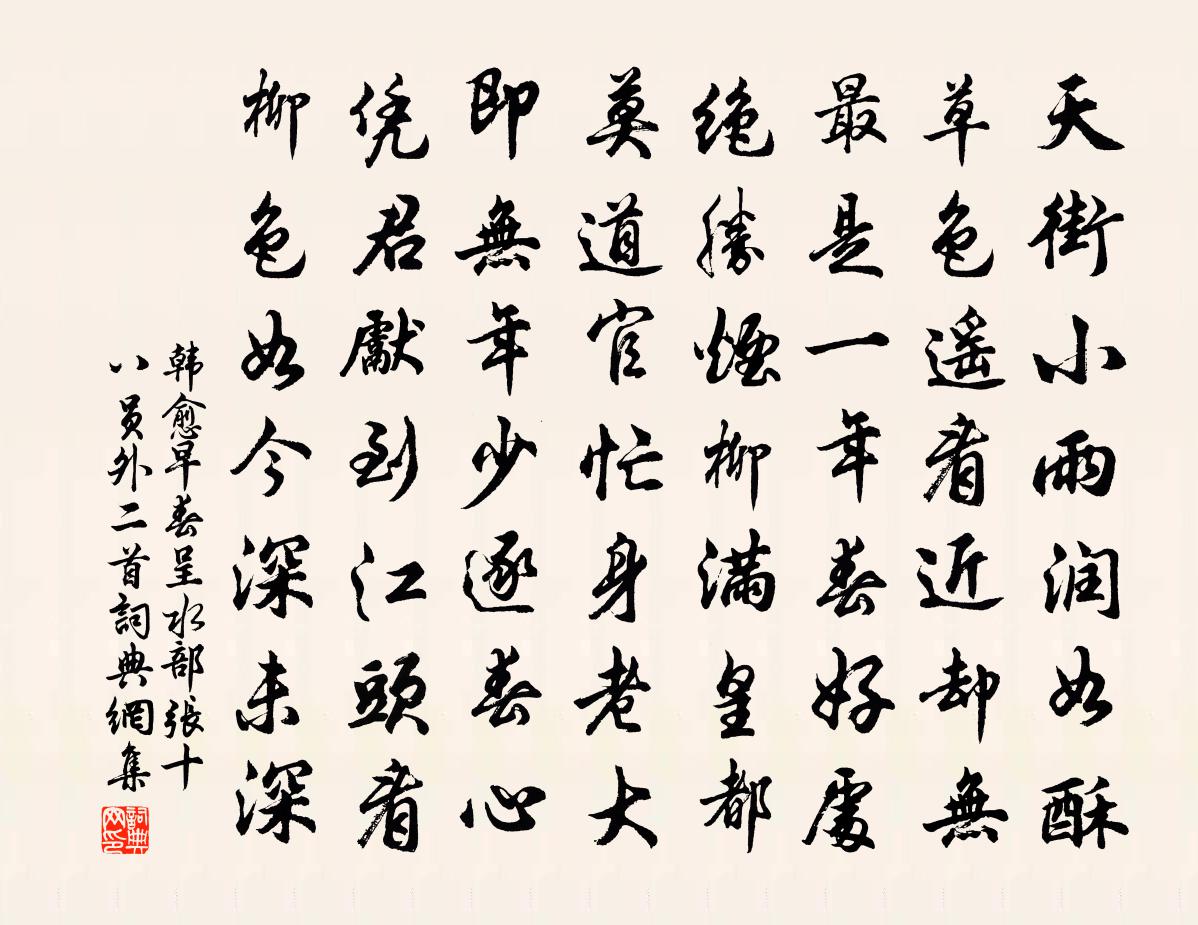 天街小雨润如酥
草色遥看近却無
最是一年春好處
絶勝煙柳滿皇都
莫道官忙身老大
即無年少逐春心
凭君獻到江頭看
柳色如今深未深
韩愈早春呈水部張十
八員外二首詞典網集
詞典
网印